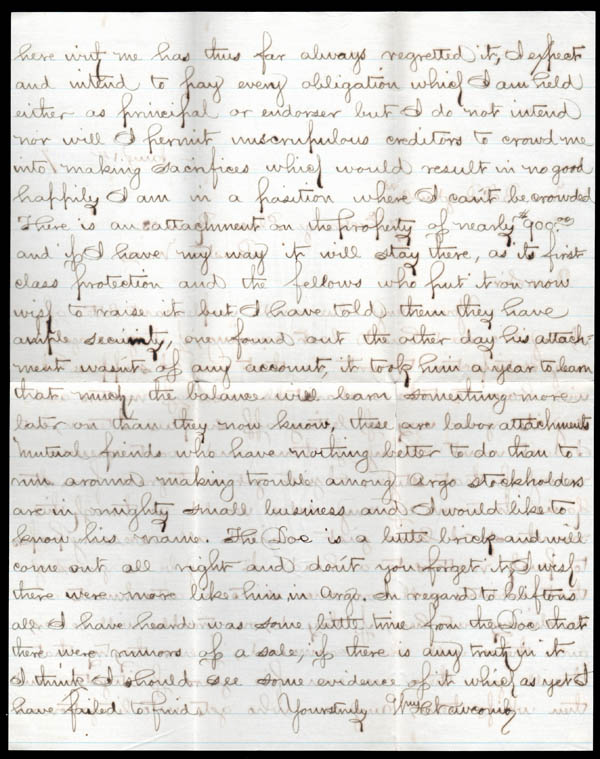 here with me has thus far always regretted it, I expect
and intend to pay every obligation which I am held
either as principal or endorser but I do not intend
nor will I permit unscrupulous creditors to crowd me
into making sacrifices which would result in no good
happily I am in a position where I can't be crowded
There is an attachment on the property of nearly $900.00
and if I have my way it will stay there, as its first
class protection and the fellows who put it on now
wish to raise it but I have told them they have
ample security, one found out the other day his attach-
ment wasn't of any account, it took him a year to learn
that much, the balance will learn something more
later on than they now know, these are labor attachments
mutual friends who have nothing better to do than to
run around making trouble among Argo stockholders
are in mighty small business and I would like to
know his name. The Doc is a little brick and will
come out all right and don't you forget it, I wish
there were more like him in Argo. In regard to Cliftons
all I have heard was some little time from the Doc that
there were rumors of a sale, if there is any truth in it
I think I should see some evidence of it which as yet I
have failed to find Yours truly Wm